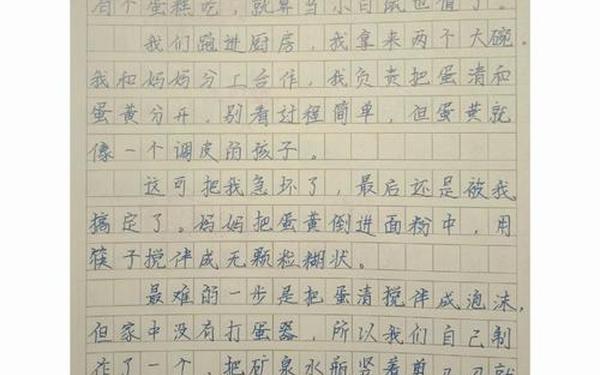 有个蛋糕吃，就算当小白鼠也值了。
我们跑进厨房，我拿来两个大碗。
我和妈妈分工合作，我负责把蛋清和
蛋黄分开，别看过程简单，但蛋黄就
像一个调皮的孩子。
这可把我急坏了，最后还是被我
搞定了。妈妈把蛋黄倒进面粉中，用
筷子搅伴成无颗粒糊状。
最难的一步是把蛋清搅伴成泡沫，
但家中没有打蛋器，所以我们自己制
作了一个，把矿泉水瓶竖着剪几刀就